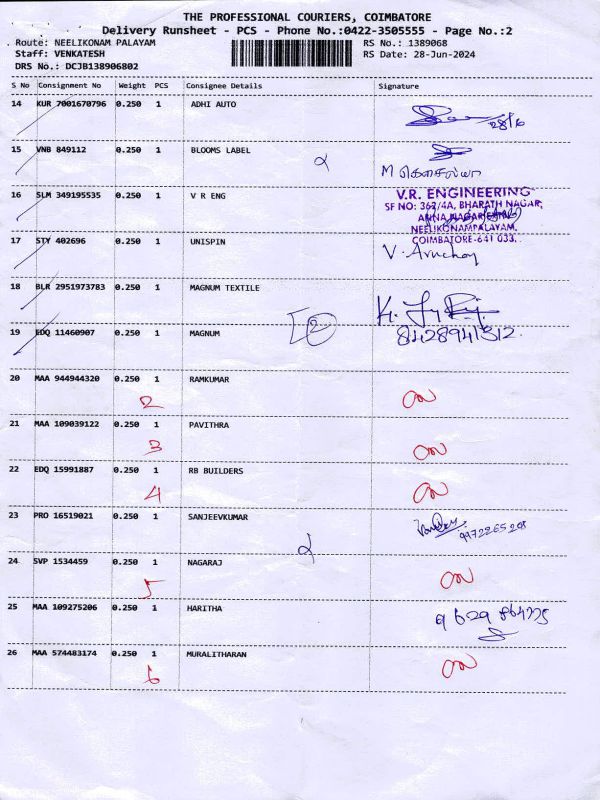 THE PROFESSIONAL COURIERS, COIMBATORE
Delivery Runsheet - PCS - Phone No.:0422-3505555 - Page No.:2
Route: NEELIKONAM PALAYAM RS No.: 1389068
Staff: VENKATESH RS Date: 28-Jun-2024
DRS No.: DCJB138906802
S No Consignment No Weight PCS Consignee Details Signature
14 KUR 7001670796 0.250 1 ADHI AUTO
28/6
15 VNB 849112 0.250 1 BLOOMS LABEL
M கௌசல்யா
16 SLM 349195535 0.250 1 V R ENG V.R. ENGINEERING
SF NO: 362/4A, BHARATH NAGAR,
ANNA NAGAR
NEELIKONAMPALAYAM,
17 STY 402696 0.250 1 UNISPIN COIMBATORE-641 033.
V. Arunchay
18 BLR 2951973783 0.250 1 MAGNUM TEXTILE
2
19 EDQ 11460907 0.250 1 MAGNUM 8428941312
20 MAA 944944320 0.250 1 RAMKUMAR
2
21 MAA 109039122 0.250 1 PAVITHRA
3
22 EDQ 15991887 0.250 1 RB BUILDERS
4
23 PRO 16519021 0.250 1 SANJEEVKUMAR
24 SVP 1534459 0.250 1 NAGARAJ
5
25 MAA 109275206 0.250 1 HARITHA
26 MAA 574483174 0.250 1 MURALITHARAN
6